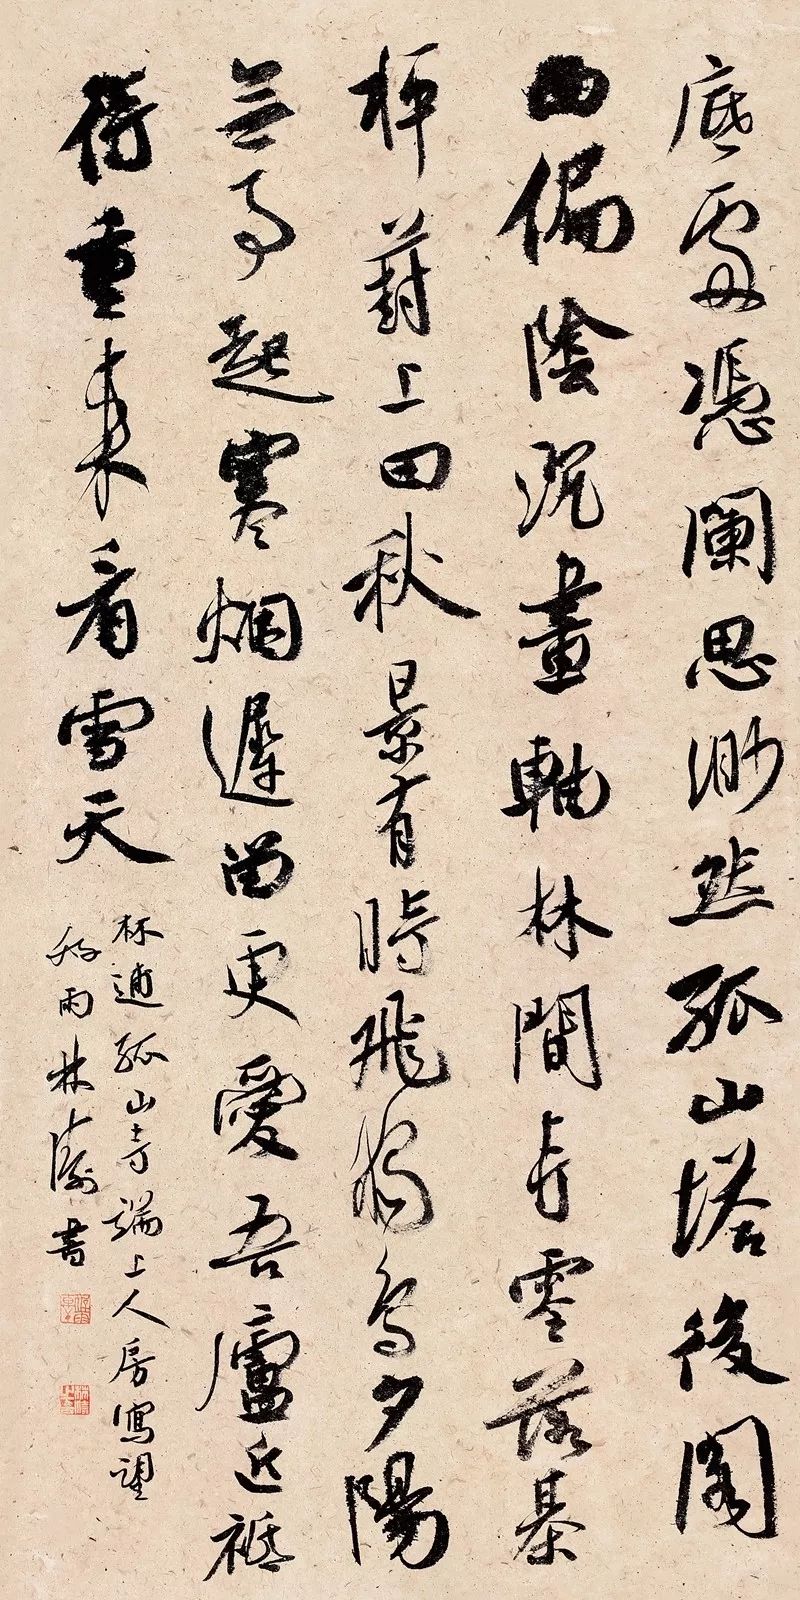 底處憑闌思渺然孤山塔後閣
西偏陰沉畫軸林間寺零落棊
枰葑上田秋景有時飛獨鳥夕陽
無事起寒烟遲留更愛吾廬近祗
待重来看雪天
林逋孤山寺端上人房寫望
雨林濤書